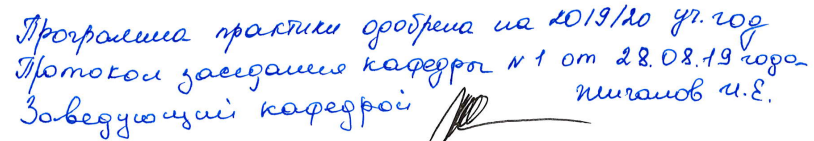 Программа практики одобрена на 2019/20 уч. год
Протокол заседания кафедры № 1 от 28.08.19 года
Заведующий кафедрой Жигалов И.Е.